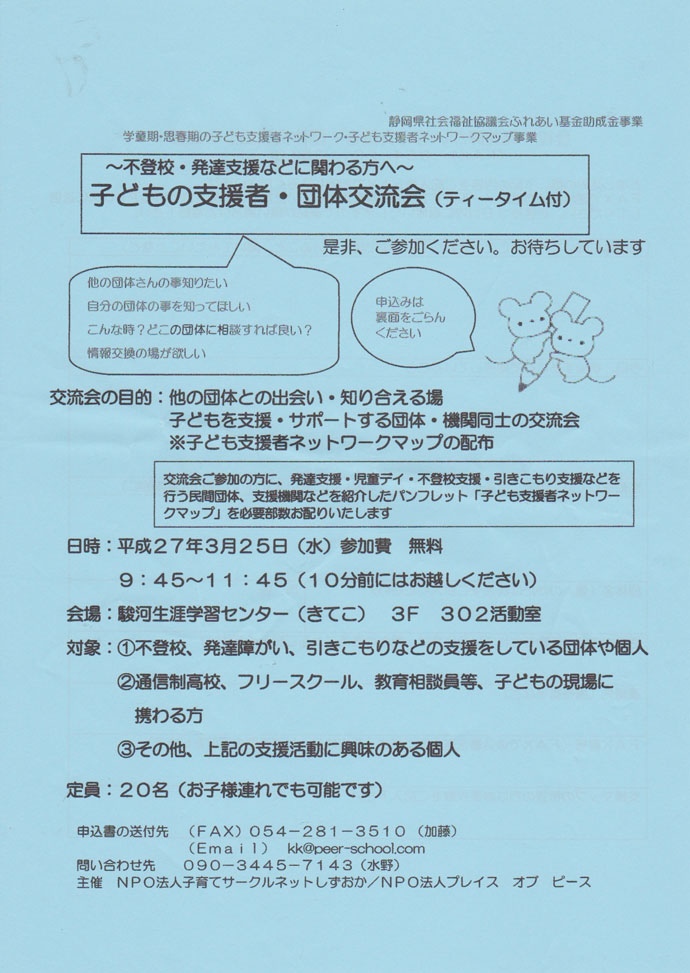 静岡県社会福祉協議会ふれあい基金助成金事業
学童期・思春期の子ども支援者ネットワーク・子ども支援者ネットワークマップ事業
～不登校・発達支援などに関わる方へ～
子どもの支援者・団体交流会（ティータイム付）
是非、ご参加ください。お待ちしています
他の団体さんの事知りたい
自分の団体の事を知ってほしい
こんな時？どこの団体に相談すれば良い？
情報交換の場が欲しい
申込みは
裏面をごらん
ください
交流会の目的：他の団体との出会い・知り合える場
子どもを支援・サポートする団体・機関同士の交流会
※子ども支援者ネットワークマップの配布
交流会ご参加の方に、発達支援・児童デイ・不登校支援・引きこもり支援などを
行う民間団体、支援機関などを紹介したパンフレット「子ども支援者ネットワー
クマップ」を必要部数お配りいたします
日時：平成２７年３月２５日（水）参加費　無料
９：４５～１１：４５（１０分前にはお越しください）
会場：駿河生涯学習センター（きてこ）　３Ｆ　３０２活動室
対象：①不登校、発達障がい、引きこもりなどの支援をしている団体や個人
②通信制高校、フリースクール、教育相談員等、子どもの現場に
携わる方
③その他、上記の支援活動に興味のある個人
定員：２０名（お子様連れでも可能です）
申込書の送付先　（ＦＡＸ）０５４－２８１－３５１０（加藤）
（Ｅｍａｉｌ）　kk@peer-school.com
問い合わせ先　　０９０－３４４５－７１４３（水野）
主催　ＮＰＯ法人子育てサークルネットしずおか／ＮＰＯ法人プレイス　オブ　ピース